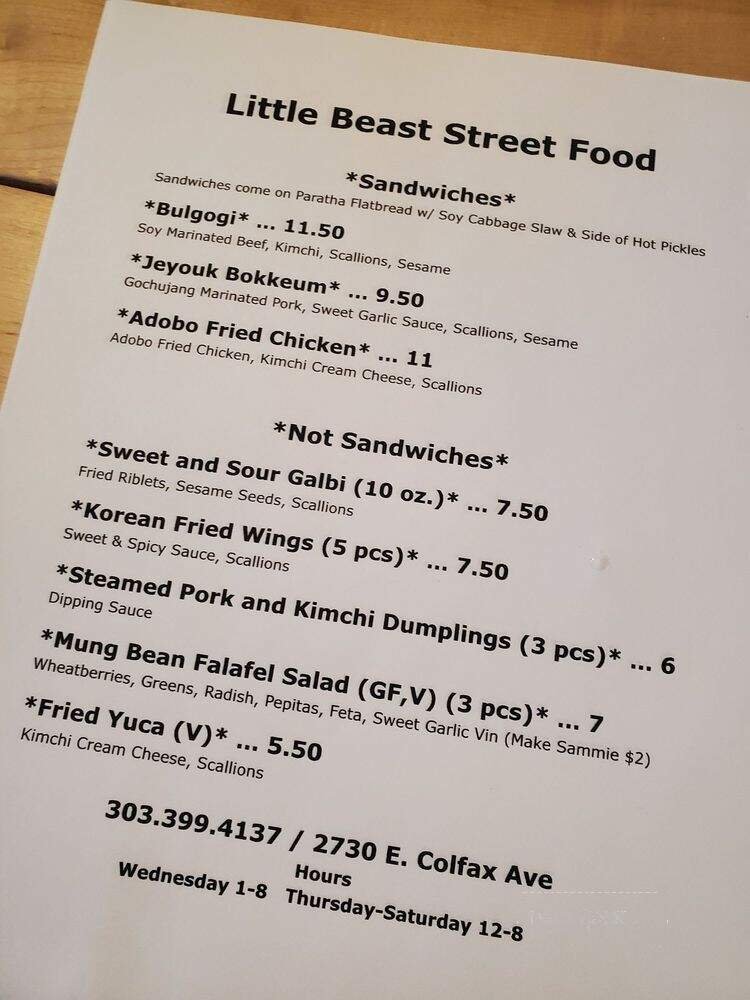 Little Beast Street Food
*Sandwiches*
Sandwiches come on Paratha Flatbread w/ Soy Cabbage Slaw & Side of Hot Pickles
*Bulgogi* ... 11.50
Soy Marinated Beef, Kimchi, Scallions, Sesame
*Jeyouk Bokkeum* ... 9.50
Gochujang Marinated Pork, Sweet Garlic Sauce, Scallions, Sesame
*Adobo Fried Chicken* ... 11
Adobo Fried Chicken, Kimchi Cream Cheese, Scallions
*Not Sandwiches*
*Sweet and Sour Galbi (10 oz.)* ... 7.50
Fried Riblets, Sesame Seeds, Scallions
*Korean Fried Wings (5 pcs)* ... 7.50
Sweet & Spicy Sauce, Scallions
*Steamed Pork and Kimchi Dumplings (3 pcs)* ... 6
Dipping Sauce
*Mung Bean Falafel Salad (GF,V) (3 pcs)* ... 7
Wheatberries, Greens, Radish, Pepitas, Feta, Sweet Garlic Vin (Make Sammie $2)
*Fried Yuca (V)* ... 5.50
Kimchi Cream Cheese, Scallions
303.399.4137 / 2730 E. Colfax Ave
Hours
Wednesday 1-8 Thursday-Saturday 12-8